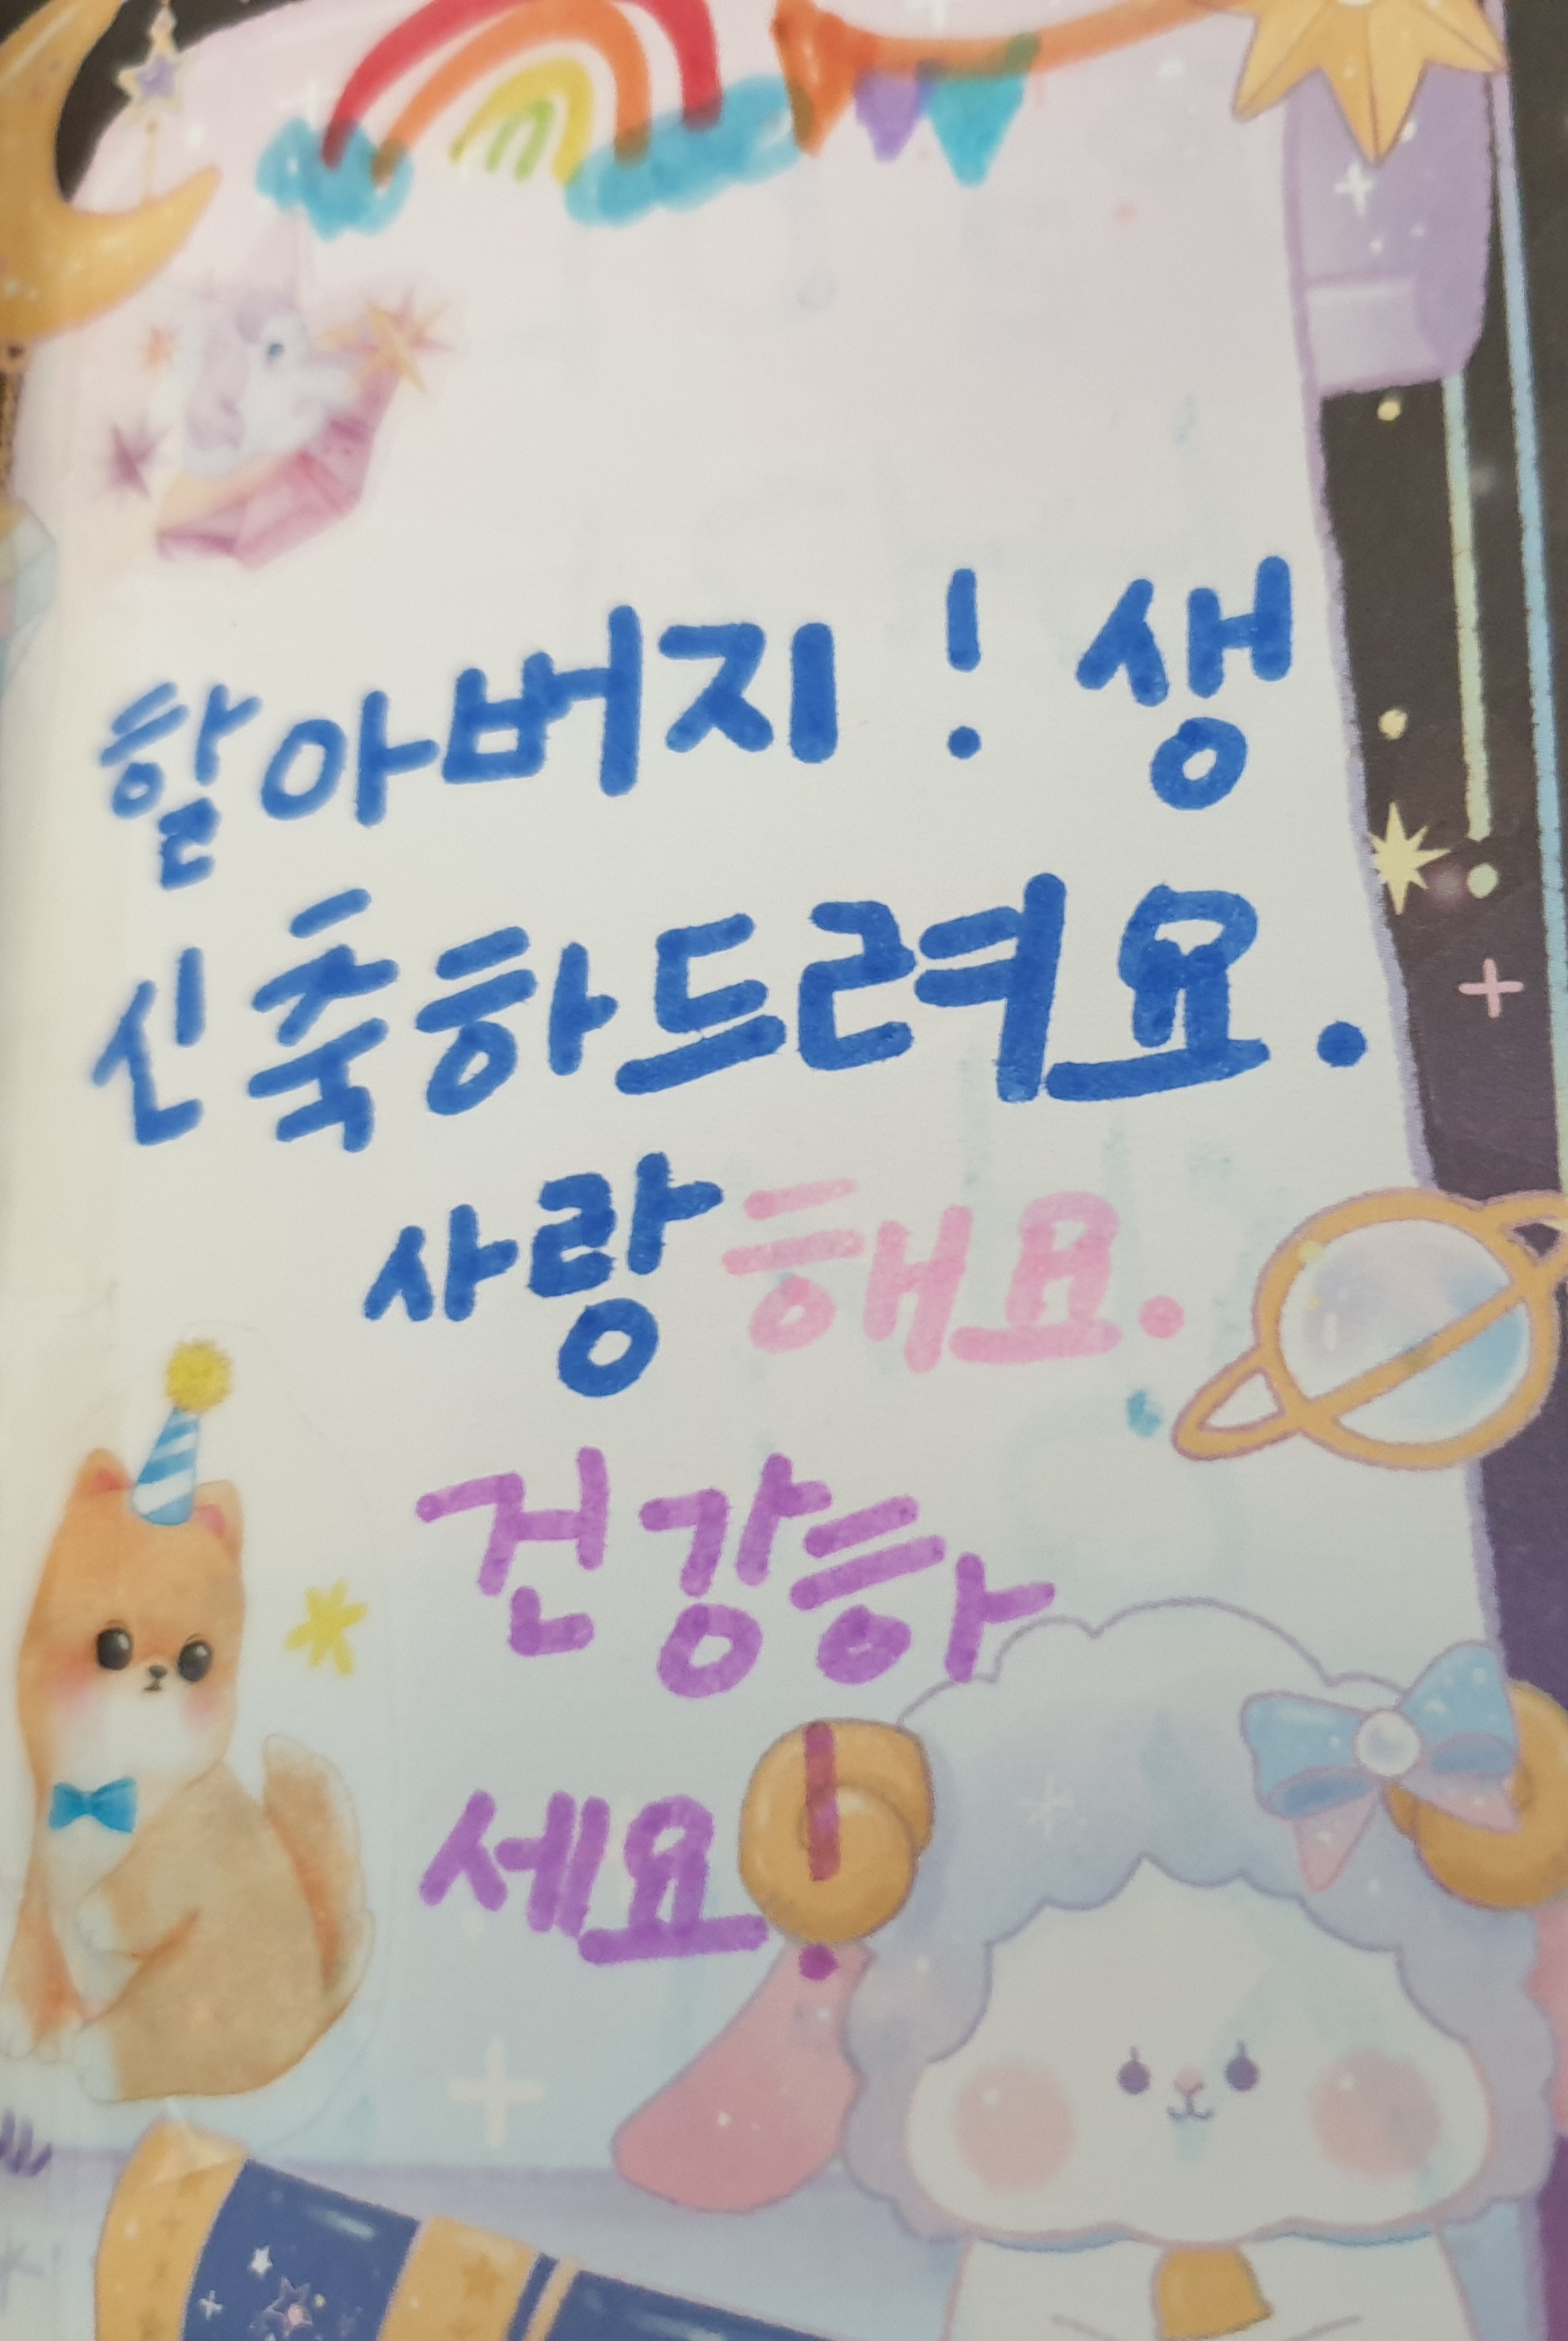 할아버지! 생
신축하드려요.
사랑해요.
건강하
세요!